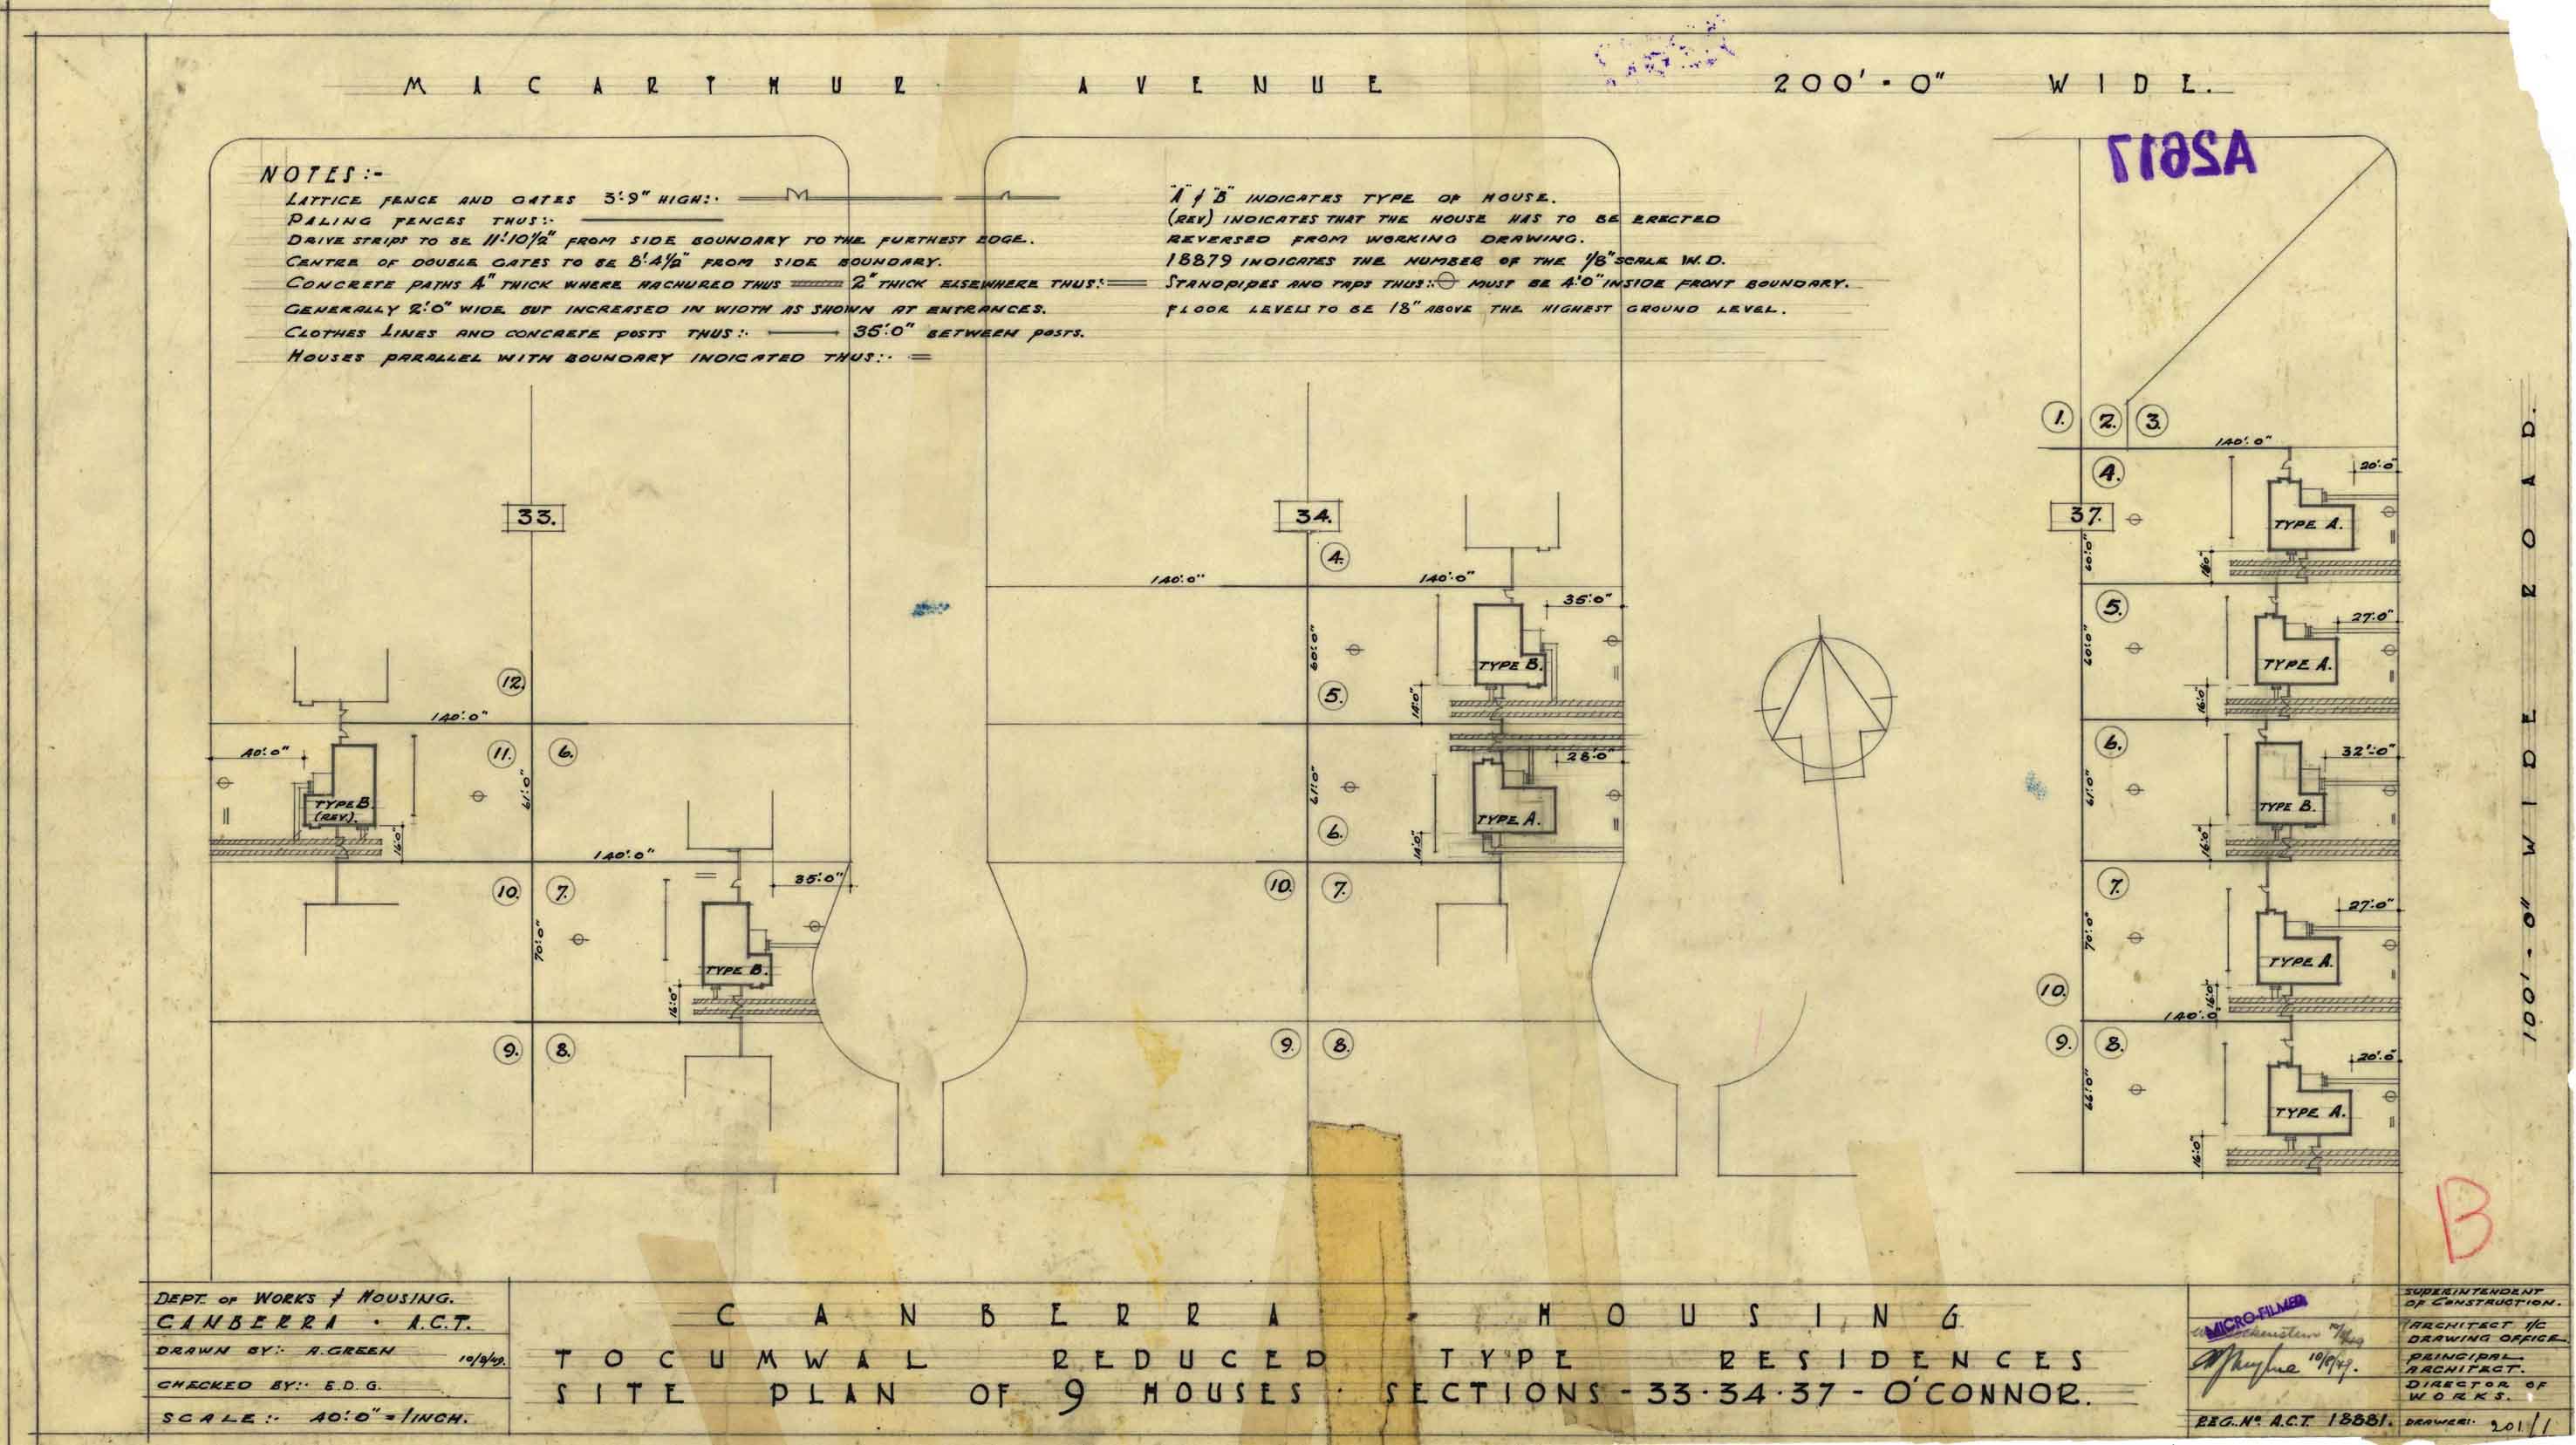 MACARTHUR AVENUE 200'-0" WIDE.
A2617
NOTES:-
LATTICE FENCE AND GATES 3'-9" HIGH:-
PALING FENCES THUS:-
DRIVE STRIPS TO BE 11'-10½" FROM SIDE BOUNDARY TO THE FURTHEST EDGE.
CENTRE OF DOUBLE GATES TO BE 8'-4½" FROM SIDE BOUNDARY.
CONCRETE PATHS 4" THICK WHERE HACHURED THUS 2" THICK ELSEWHERE THUS:-
GENERALLY 2'-0" WIDE BUT INCREASED IN WIDTH AS SHOWN AT ENTRANCES.
CLOTHES LINES AND CONCRETE POSTS THUS:- 35'-0" BETWEEN POSTS.
HOUSES PARALLEL WITH BOUNDARY INDICATED THUS:-
"A" & "B" INDICATES TYPE OF HOUSE.
(REV) INDICATES THAT THE HOUSE HAS TO BE ERECTED
REVERSED FROM WORKING DRAWING.
18879 INDICATES THE NUMBER OF THE 1/8" SCALE W.D.
STANDPIPES AND TAPS THUS:- MUST BE 4'-0" INSIDE FRONT BOUNDARY.
FLOOR LEVELS TO BE 18" ABOVE THE HIGHEST GROUND LEVEL.
33.
12.
140'-0"
40'-0"
11.
6.
61'-0"
TYPE B.
(REV).
16'-0"
140'-0"
10.
7.
35'-0"
70'-0"
TYPE B.
16'-0"
9.
8.
34.
4.
140'-0"
140'-0"
35'-0"
60'-0"
TYPE B.
5.
14'-0"
28'-0"
61'-0"
TYPE A.
6.
14'-0"
10.
7.
9.
8.
1.
2.
3.
140'-0"
4.
20'-0"
37.
TYPE A.
60'-0"
5.
27'-0"
60'-0"
TYPE A.
16'-0"
6.
32'-0"
61'-0"
TYPE B.
16'-0"
7.
27'-0"
70'-0"
TYPE A.
10.
16'-0"
140'-0"
9.
8.
20'-0"
66'-0"
TYPE A.
16'-0"
100'-0" WIDE ROAD.
B
DEPT. OF WORKS & HOUSING.
CANBERRA · A.C.T.
DRAWN BY:- A.GREEN 10/8/49.
CHECKED BY:- E.D.G.
SCALE:- 40'-0" = 1 INCH.
CANBERRA · HOUSING
TOCUMWAL REDUCED TYPE RESIDENCES
SITE PLAN OF 9 HOUSES · SECTIONS - 33·34·37 - O'CONNOR.
MICRO-FILMED
10/8/49.
SUPERINTENDENT
OF CONSTRUCTION.
ARCHITECT I/C
DRAWING OFFICE
PRINCIPAL
ARCHITECT.
DIRECTOR OF
WORKS.
REG. Nº A.C.T. 18881. DRAWER:- 201/1